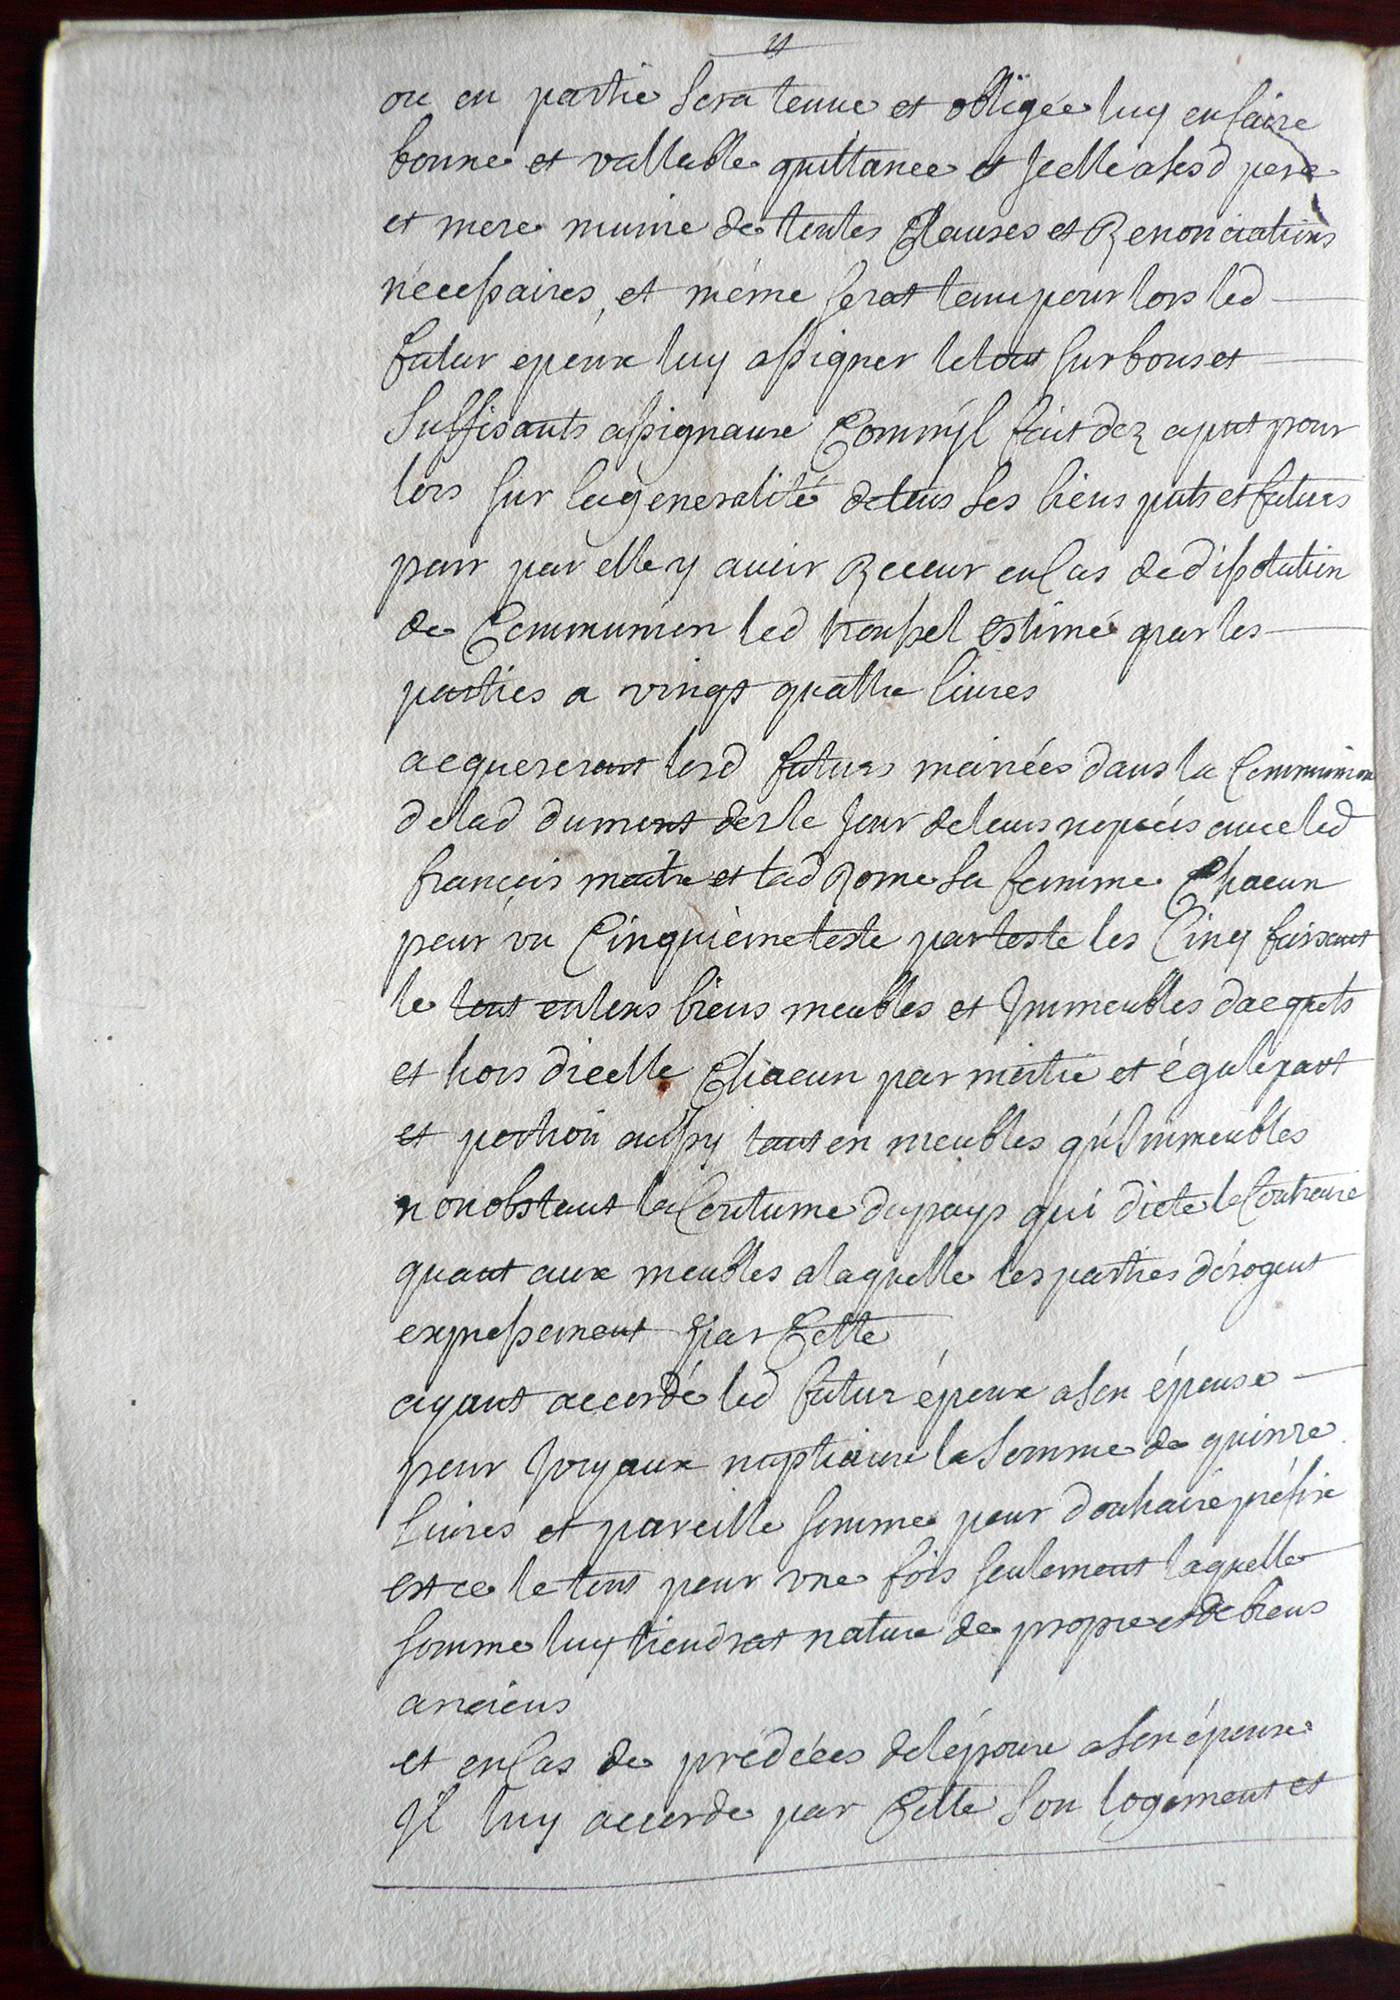 ou en partie sera tenue et obligée luy en faire
bonne et vallable quittance et Jcelle a sesd pere
et mere munie de toutes Clauses et Renonciations
nécessaires, et même serat tenu pour lors led
futur epoux luy assigner le tout sur bons et
suffisants assignaux Comm'jl fait dez apnt pour
lors sur la généralité de tous ses biens pnts et futurs
pour par elle y avoir Recour en Cas de dissolution
de Communion led troussel estimé par les
parties a vingt quattre livres
acquereront lesd futurs mariées dans la Communion
delad dumont dez le Jour de leurs nopces avec led
françois maitre et lad Rome sa femme Chacun
pour vn Cinquième teste par teste les Cinq faisant
le tout en tous biens meubles et Jmmeubles dacquets
et hors dicelle Chacun par moitié et égale part
et portion aussy tant en meubles qu'Jmmeubles
nonobstant la Coutume du pays qui dicte le Contraire
quant aux meubles a laquelle les parties dérogent
expressement par Cette
ayant accordé led futur époux a son épouse
pour Joyaux nuptiaux la somme de quinze
livres et pareille somme pour douhaire préfix
est ce le tout pour vne fois seulement laquelle
somme luy tiendrat nature de propre et de biens
anciens
et en Cas de prédécés de lépoux a son épouse
Jl luy accorde par Cette son logement et